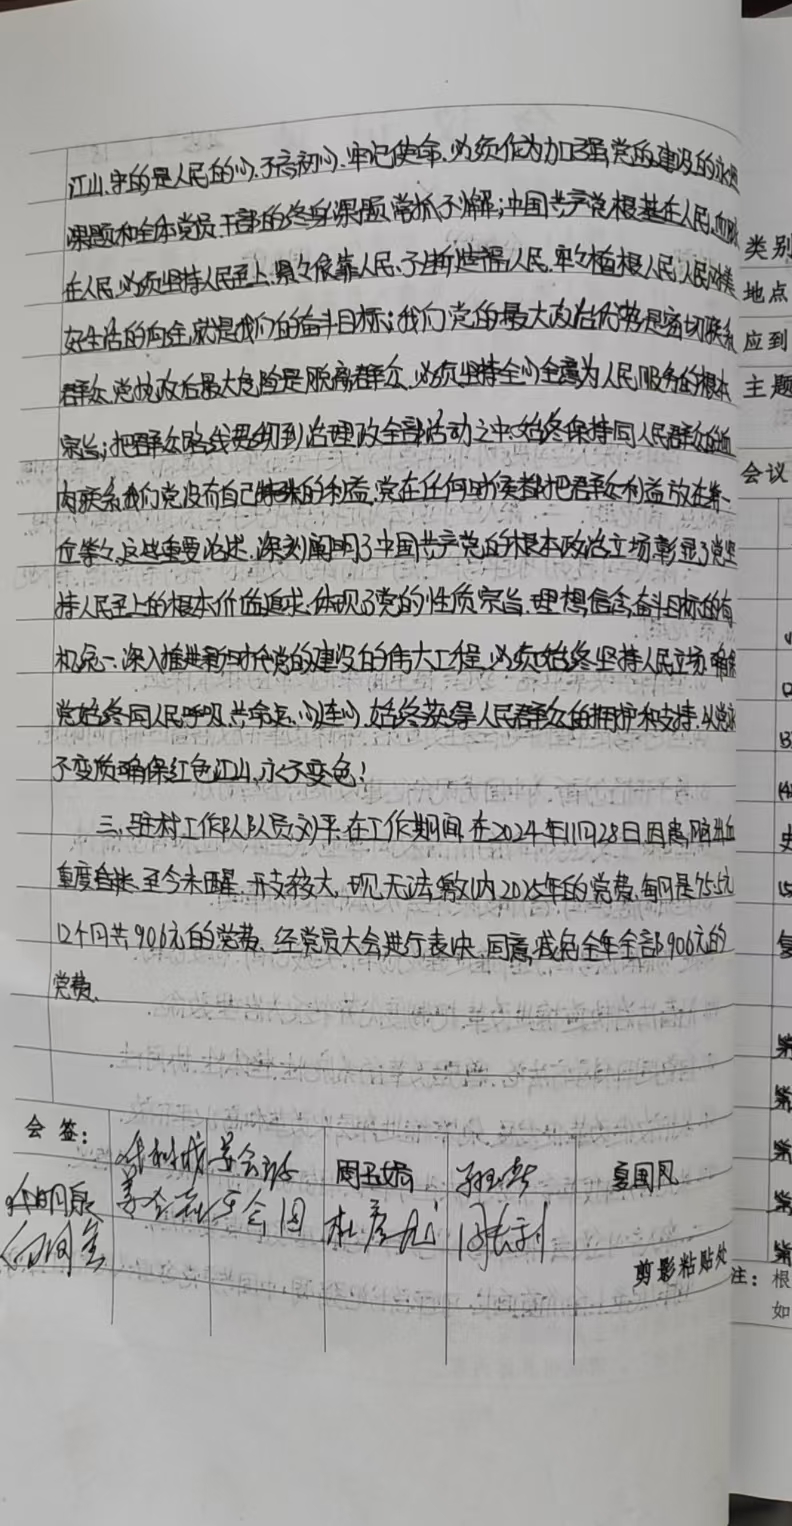 江山、守的是人民的心、不忘初心、牢记使命、必须作为加强党的建设的永恒
课题和全体党员、干部的终身课题常抓不懈；中国共产党根基在人民、血脉
在人民、必须坚持人民至上、紧紧依靠人民、不断造福人民、牢牢植根人民；人民对美
好生活的向往，就是我们的奋斗目标；我们党的最大政治优势是密切联系
群众、党执政后最大危险是脱离群众、必须坚持全心全意为人民服务的根本
宗旨；把群众路线贯彻到治理政全部活动之中、始终保持同人民群众的血
肉联系；我们党没有自己特殊的利益、党在任何时候都把群众利益放在第一
位等等、这些重要论述、深刻阐明了中国共产党的根本政治立场、彰显了党坚
持人民至上的根本价值追求、体现了党的性质宗旨、理想信念、奋斗目标的有
机统一、深入推进新时代党的建设的伟大工程、必须始终坚持人民立场、确保
党始终同人民同呼吸、共命运、心连心、始终获得人民群众的拥护和支持、
不变质、确保红色江山、永不变色！
三、驻村工作队队员刘平、在工作期间、在2024年11月28日因患脑出血
重度昏迷、至今未醒、开支较大、现无法缴纳2025年的党费、每月是75.5元
12个月共906元的党费、经党员大会进行表决、同意、减免全年全部906元的
党费、
会 签：
周玉娇
夏国凤
剪影粘贴处
类别
地点
应到
主题
会议
注：根
如